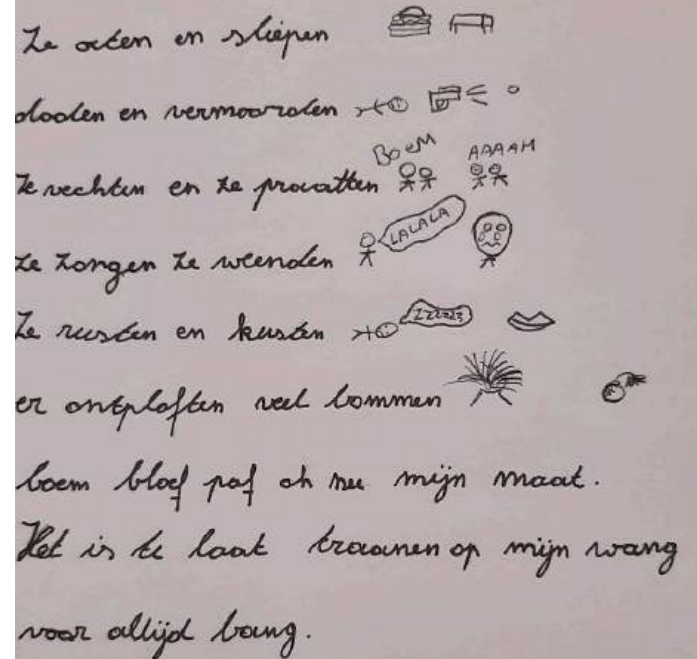 Ze aten en sliepen
dooden en vermoorden
BOEM AAAAH
Ze vechten en ze praatten
LALALA
ze zongen ze weenden
Zzzzzz
Ze rusten en kusten
er ontploften veel bommen
boem bloef paf oh nee mijn maat.
Het is te laat traanen op mijn wang
voor altijd bang.